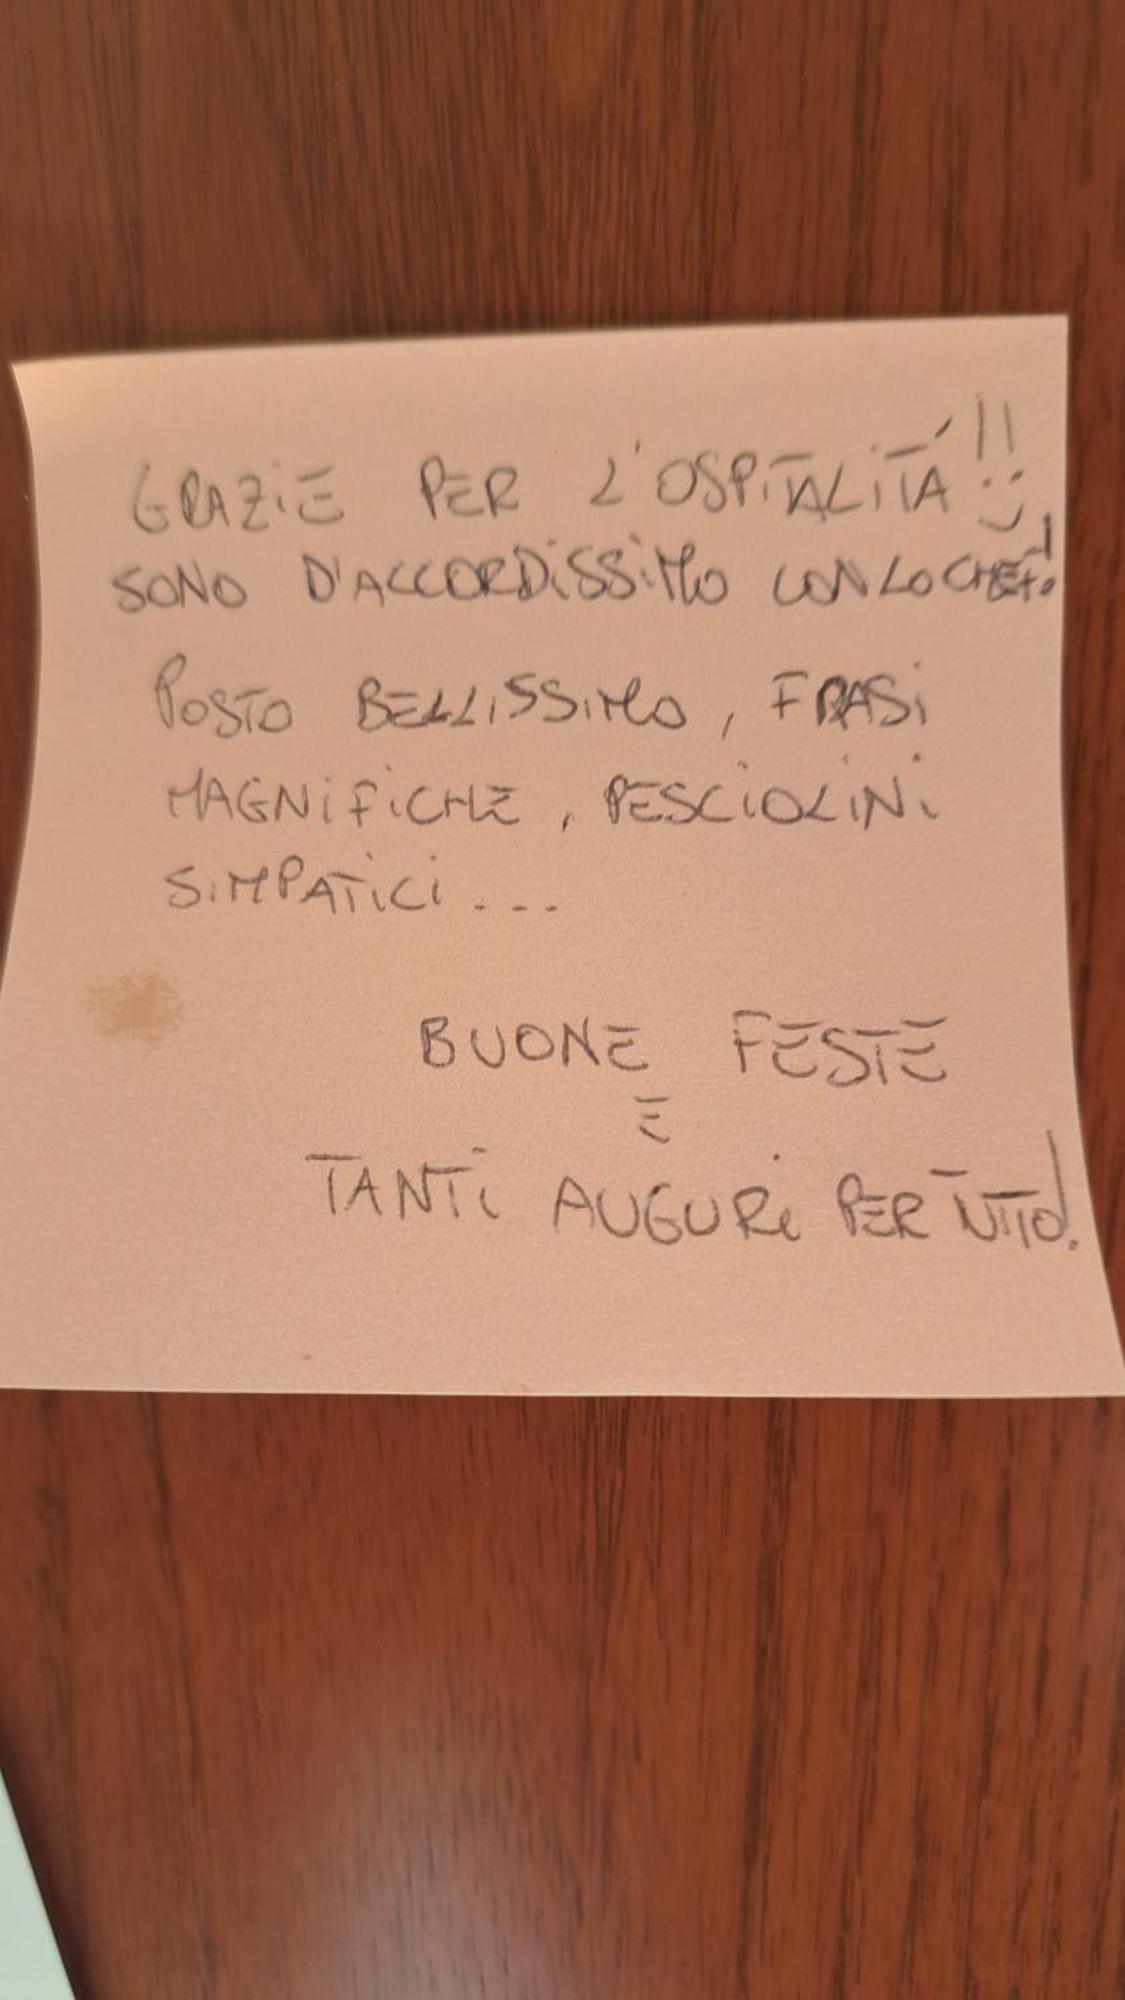 GRAZIE PER L'OSPITALITÀ!! :)
SONO D'ACCORDISSIMO CON LO CHEF!
POSTO BELLISSIMO, FRASI
MAGNIFICHE, PESCIOLINI
SIMPATICI...
BUONE FESTE
E
TANTI AUGURI PER TUTTO!